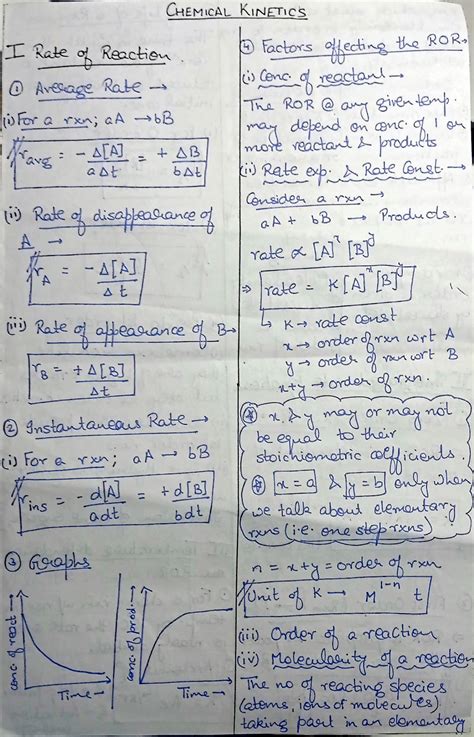 CHEMICAL KINETICS
I Rate of Reaction.
① Average Rate →
(i) For a rxn; aA → bB
r_avg = -Δ[A]/aΔt = +ΔB/bΔt
(ii) Rate of disappearance of
A →
r_A = -Δ[A]/Δt
(iii) Rate of appearance of B→
r_B = +Δ[B]/Δt
② Instantaneous Rate →
(i) For a rxn; aA → bB
r_ins = -d[A]/adt = +d[B]/bdt
③ Graphs
conc of react →
Time →
conc of prod →
Time →
④ Factors affecting the ROR→
(i) Conc. of reactant →
The ROR @ any given temp.
may depend on conc. of 1 or
more reactant & products
(ii) Rate exp. & Rate Const. →
Consider a rxn →
aA + bB → Products.
rate ∝ [A]^x [B]^y
⇒ rate = K[A]^x [B]^y
↳ K → rate const
x → order of rxn wrt A
y → order of rxn wrt B
x+y → order of rxn.
x & y may or may not
be equal to their
stoichiometric coefficients.
x = a & y = b only when
we talk about elementary
rxns (i.e. one step rxns)
n = x+y = order of rxn
Unit of K → M^1-n t
(iii) Order of a reaction
(iv) Molecularity of a reaction
The no of reacting species
(atoms, ions or molecules)
taking part in an elementary